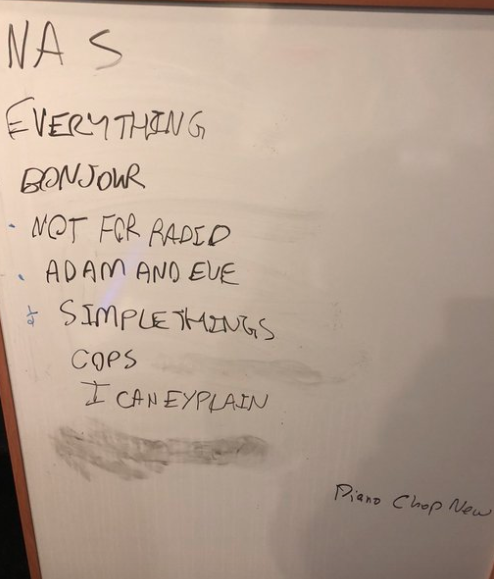 NAS
EVERYTHING
BONJOUR
NOT FOR RADIO
ADAM AND EVE
SIMPLE THINGS
COPS
I CAN EYPLAIN
Piano Chop New